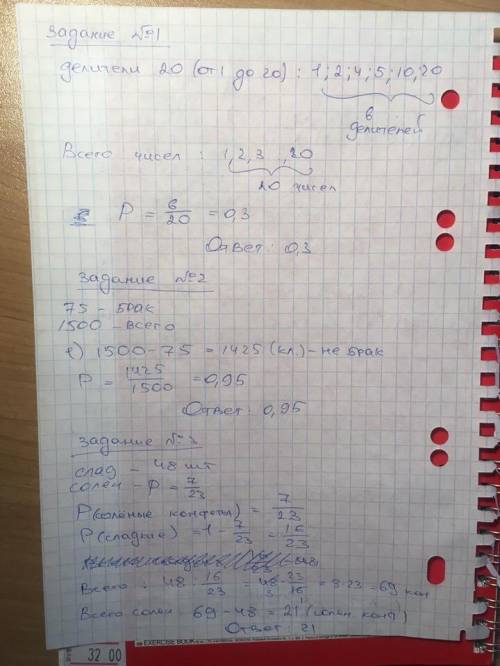 Задание №1
делители 20 (от 1 до 20) : 1; 2; 4; 5; 10; 20
6
делителей
Всего чисел : 1, 2, 3 ..., 20
20 чисел
P = 6/20 = 0,3
Ответ: 0,3
Задание №2
75 - брак
1500 - всего
1) 1500 - 75 = 1425 (кл.) - не брак
P = 1425/1500 = 0,95
Ответ: 0,95
Задание №3
слад - 48 шт
солен - P = 7/23
P(солёные конфеты) = 7/23
P(сладкие) = 1 - 7/23 = 16/23
Всего : 48 : 16/23 = 48·23/16 = 3·23 = 69 кон
Всего солен 69 - 48 = 21 (солен. конф)
Ответ: 21
32.00
EXERCISE BOOK